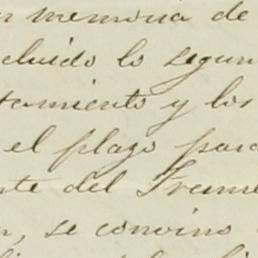 memoria de
cluido lo segun
tamiento y los
el plazo para
te del Frem
, se convino